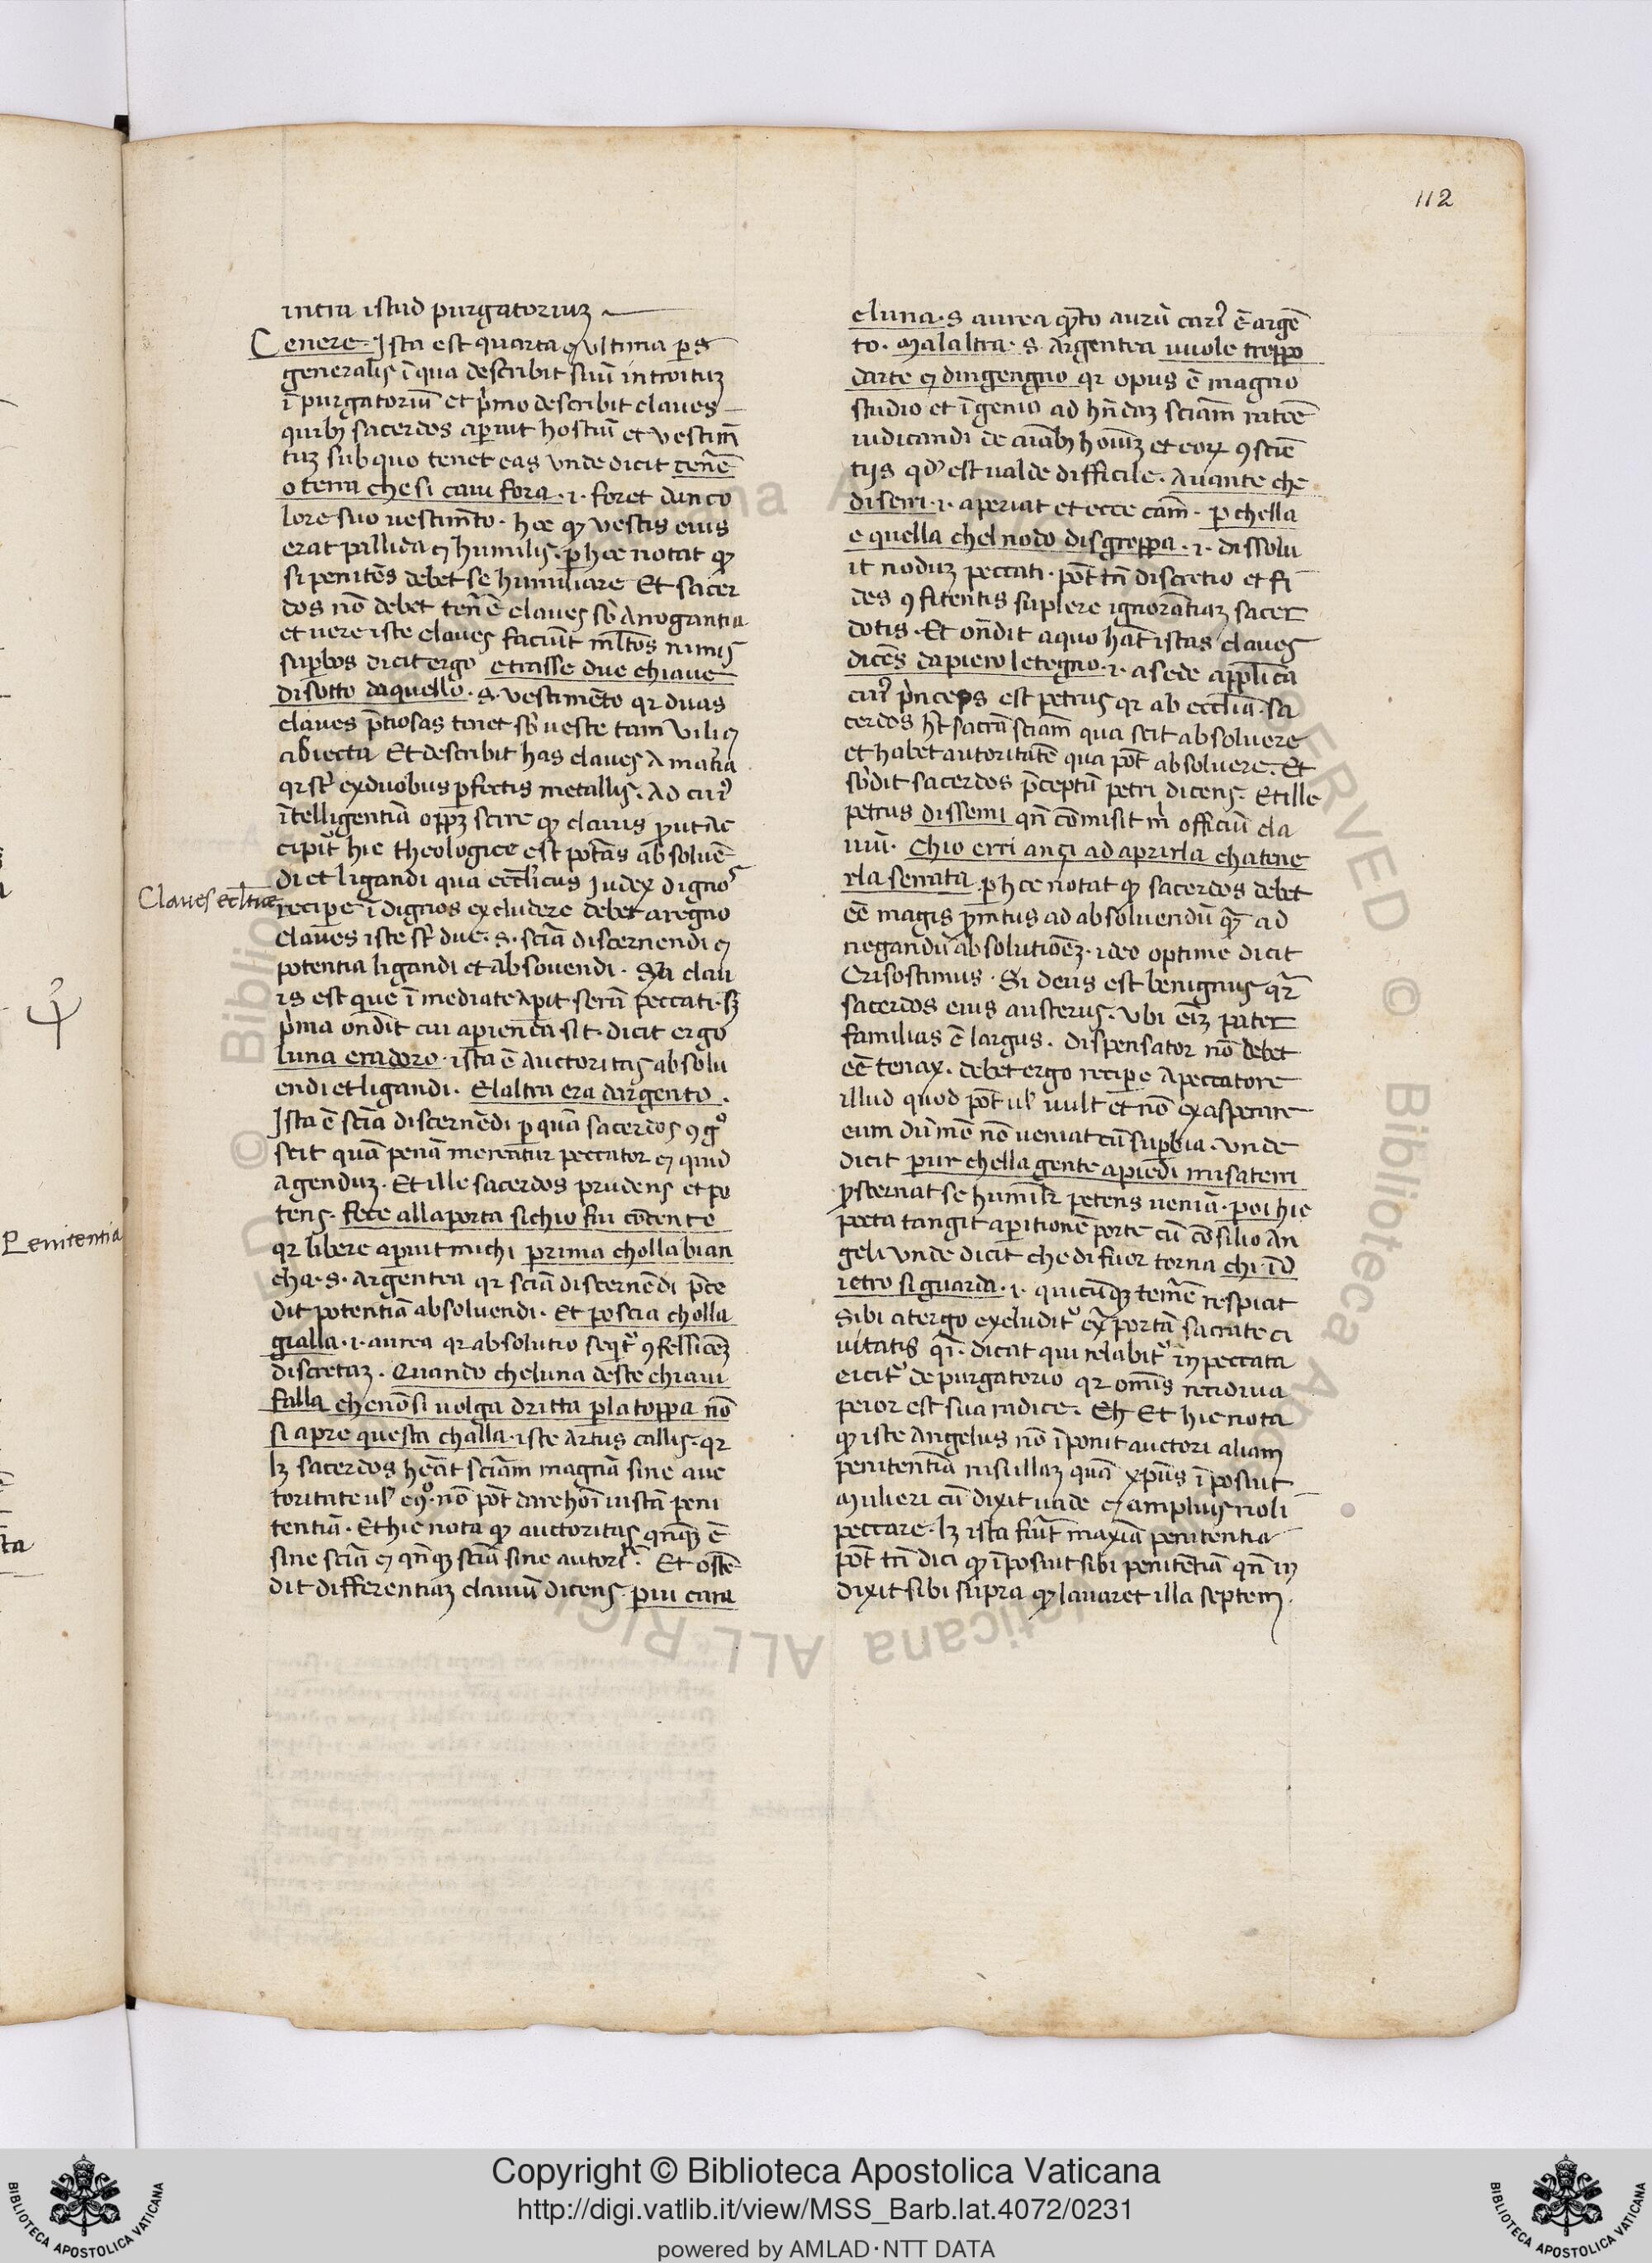 112
intra istud purgatoriuꝫ
Cenere. Ista est quarta et ultima pars
generalis ī qua describit suū introituꝫ
ī purgatoriū et pͥmo describit claves
quibꝫ sacerdos aperuit hostiū et vestimē
tuꝫ sub quo tenet eas unde dicit cenēe
o terra che si cavi fora .i. foret dun co
lore suo vestimēto. hoc ꝙ vestis eius
erat pallida et humilis. ꝑ hoc notat ꝙ
si penitēs debet se humiliare Et sacer
dos nō debet tenēe claves sb̄ arrogantia
et vere iste claves faciūt ml̄tos nimis
suꝑbos dicit ergo et trasse due chiave
disotto da quello .s. vestimēto qꝛ duas
claves p̄tiosas tenet sb̄ veste tam vili et
abiecta Et describit has claves a mat̄ia
qꝛ st̄ ex duobus ꝑfectis metallis. Ad cuiꝰ
ītelligentiā oppꝫ scire ꝙ clavis ꝓut ac
cipit̄ hic theologice est potās absoluē
di et ligandi qua eccl̄icus Judex dignos
Claves eccl̄iae
reciꝑe īdignos excludere debet a regno
claves iste st̄ due .s. sciā discernendi et
potentia ligandi et absovendi. Sꝫ clav
is est que īmediate aꝑit serā peccati. sꝫ
pͥma ondit cui aꝑienda sit. dicit ergo
luna era doro. ista ē auctoritas absolu
endi et ligandi. El altra era dargento.
Ista ē sciā discernēdi ꝑ quā sacerdos ꝯgͦ
scit quā penā mereatur peccator et quid
agenduꝫ. Et ille sacerdos prudens et po
tens. fece alla porta sichio fui cōtento
qꝛ libere aperuit michi prima cholla bian
cha .s. argentea qꝛ sciā discernēdi p̄ce
Penitentia
dit potentiā absoluendi. Et poscia cholla
gialla .i. aurea qꝛ absolutio seqt̄ ꝯfessionē
discretaꝫ. Quando cheluna deste chiavi
falla che nō si volga dritta ꝑ la toppa nō
si apre questa challa. iste artus callis. qꝛ
lꝫ sacerdos heāt sciam magnā sine auc
toritate ul̄ eqͦ. nō pōt dare hoī iustā peni
tentiā. Et hic nota ꝙ auctoritas qn̄qꝫ ē
sine sciā et qn̄qꝫ sciā sine autorͥ. Et ostē
dit differentiaꝫ claviū dicens. piu cara
e luna .s. aurea qͣto aurū cariꝰ ē argē
to. Mal altra .s. argentea vuole troppo
darte et dingengno qꝛ opus ē magno
studio et īgenio ad hn̄daꝫ sciam ritēe
iudicandi de aīabꝫ hoīuꝫ et eoꝝ ꝯsciē
tijs qd̄ est valde difficile. Avante che
diserri .i. aperiat et ecce cām. ꝑ chella
e quella chel nodo disgroppa .i. dissolu
it noduꝫ peccati. pōt tn̄ discretio et fi
des ꝯfitentis suplere ignorātiaꝫ sacer
dotis. Et ondit a quo hāt istas claves
dicēs da piero le tegno .i. a sede appl̄ica
cuiꝰ pͥnceps est petrus qꝛ ab eccl̄ia. sa
cerdos ht̄ sacrā sciam qua scit absoluere
et habet autoritatē qua pōt absoluere. Et
sb̄dit sacerdos p̄ceptū petri dicens. Et ille
petrus dissemi qn̄ cōmisit mͥ officiū cla
viū. Chio erri anzi ad aprirla cha tene
rla serrata ꝑ hoc notat ꝙ sacerdos debet
eē magis ꝓmtus ad absoluendū qͣꝫ ad
negandū absolutionēꝫ. ideo optime dicit
Crisostimus. Si deus est benignus qͬ
sacerdos eius austerus. Ubi eīꝫ pater
familias ē largus. dispensator nō debet
eē tenax. debet ergo reciꝑe a peccatore
illud quod pōt ul̄ vult et nō exasperare
eum dūmō nō veniat cū suꝑbia. unde
dicit pur chella gente a piedi mi saterri
ꝓsternat se humilr̄ petens veniā. poi hic
poeta tangit aꝑitionē porte cū cōsilio an
geli unde dicit che di fuor torna chi īd
ietro si guarda .i. quicūqꝫ temēe respiciat
sibi a tergo excludit̄ ex̄ portā sacrate ci
vitatis qͥ. dicat qui relabit̄ in peccata
eicit̄ de purgatorio qꝛ omīs recidiva
peior est sua radice. Et hic nota
ꝙ iste Angelus nō īponit auctori aliam
penitentiā nisi illaꝫ quā xp̄us īposuit
mulieri cū dixit vade et amplius noli
peccare. lꝫ ista fūit maxīa penitentia
pōt tn̄ dici ꝙ īposuit sibi penitētiā qn̄ in
dixit sibi supra ꝙ lavaret illa septem.
Copyright © Biblioteca Apostolica Vaticana
http://digi.vatlib.it/view/MSS_Barb.lat.4072/0231
powered by AMLAD·NTT DATA
BIBLIOTECA APOSTOLICA VATICANA
BIBLIOTECA APOSTOLICA VATICANA